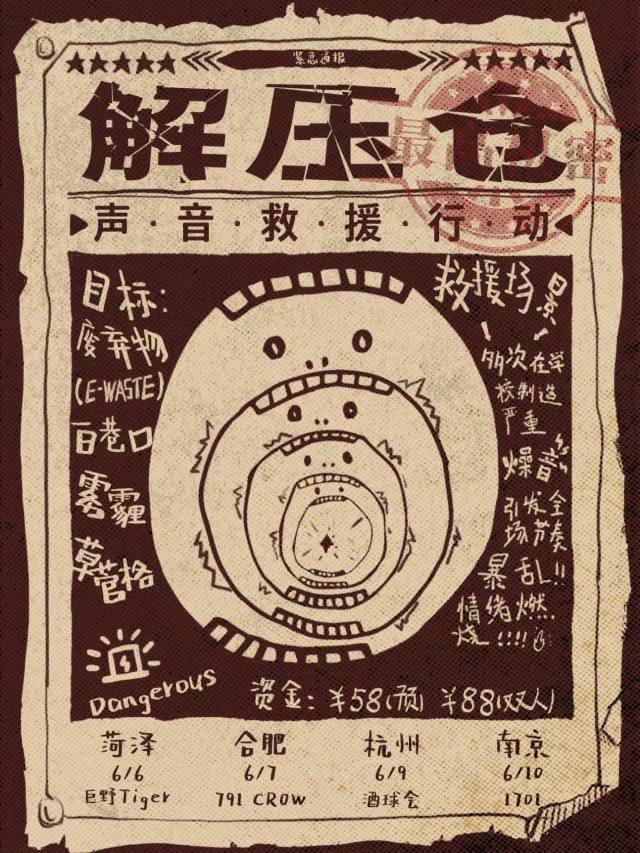 紧急通报
解压仓
声·音·救·援·行·动
目标:
废弃物
(E-WASTE)
百巷口
雾霾
莫菅格
Dangerous
救援场景
多次在学
校制造
严重
燥音
引发全
场节奏
暴乱!!
情绪燃
烧!!!!
资金:¥58(预) ¥88(双人)
菏泽
6/6
巨野Tiger
合肥
6/7
791 CROW
杭州
6/9
酒球会
南京
6/10
1701